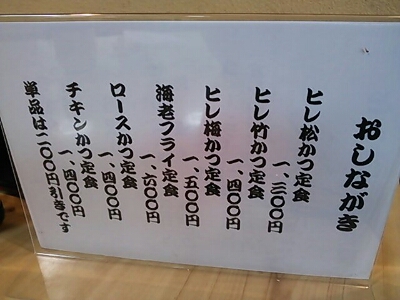 おしながき
ヒレ松かつ定食
一、三〇〇円
ヒレ竹かつ定食
一、四〇〇円
ヒレ梅かつ定食
一、五〇〇円
海老フライ定食
一、六〇〇円
ロースかつ定食
一、四〇〇円
チキンかつ定食
一、四〇〇円
単品は二〇〇円引きです